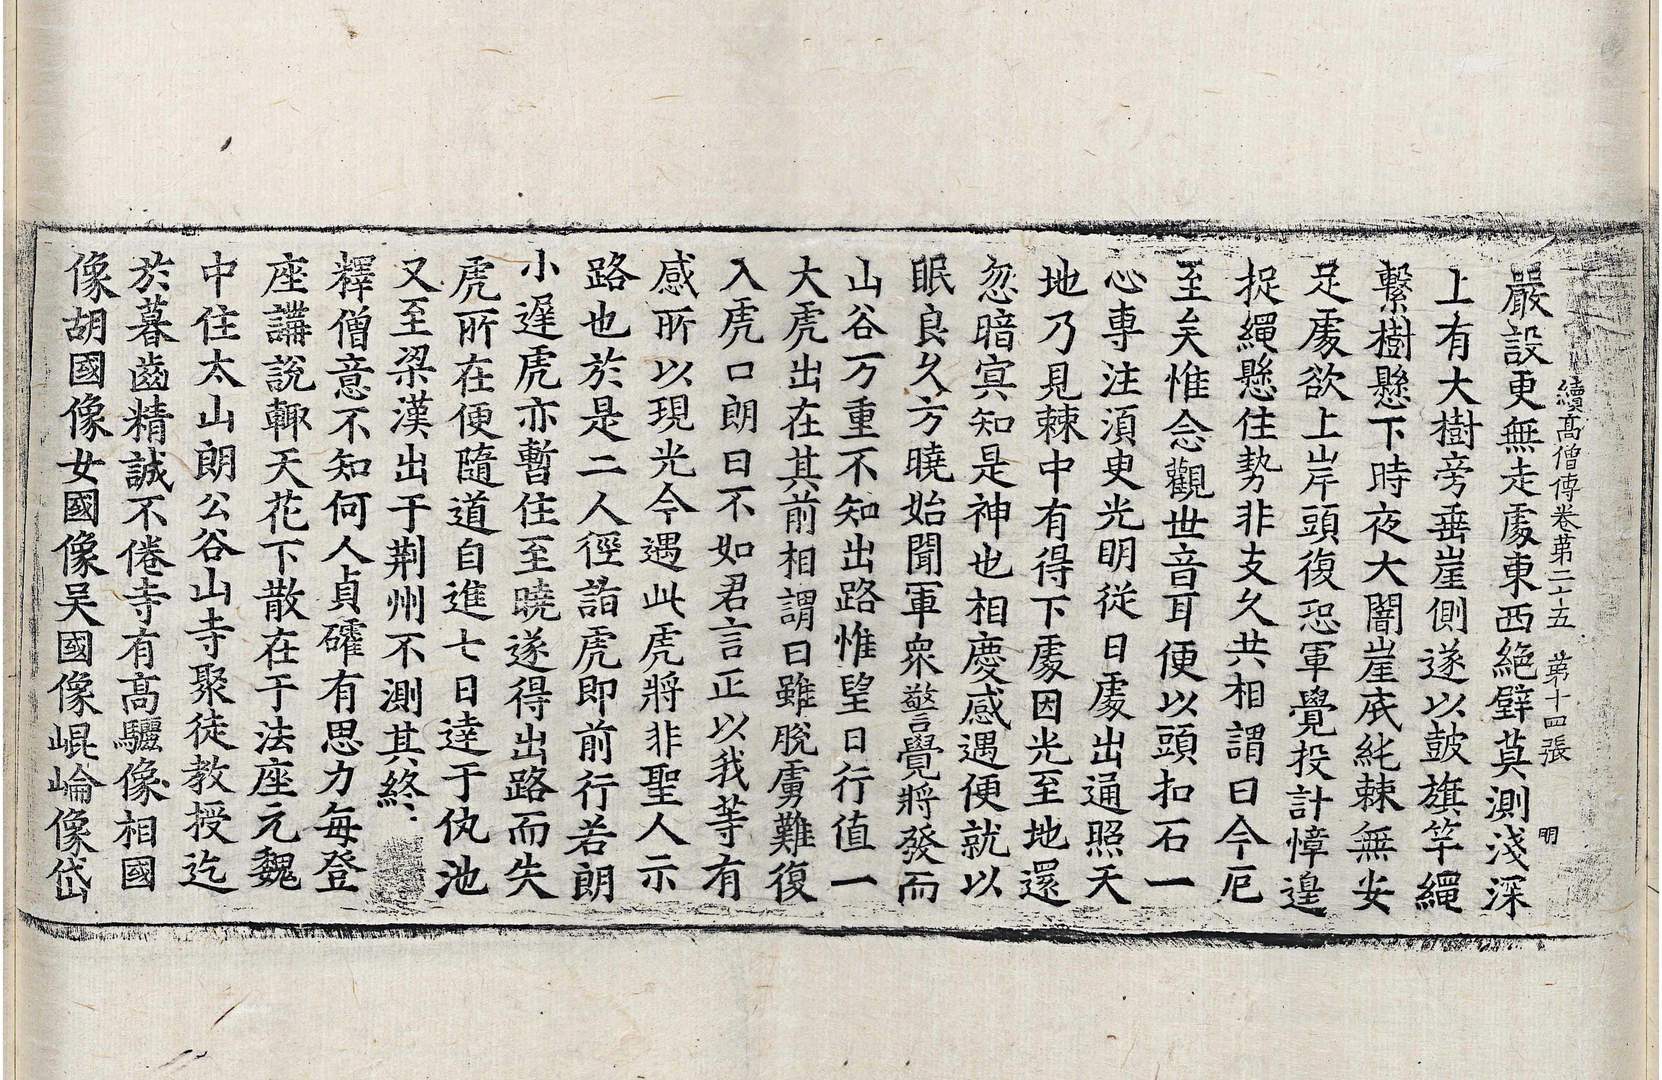 續高僧傳卷第二十五 第十四張 明
嚴設更無走處東西絶壁莫測淺深
上有大樹旁垂崖側遂以鼓旗竿繩
繫樹懸下時夜大闇崖底純棘無安
足處欲上岸頭復恐軍覺投計慞遑
捉繩懸住勢非支久共相謂曰今厄
至矣惟念觀世音耳便以頭扣石一
心專注須臾光明從日處出通照天
地乃見棘中有得下處因光至地還
忽暗冥知是神也相慶感遇便就以
眠良久方曉始聞軍衆警覺將發而
山谷万重不知出路惟望日行值一
大虎出在其前相謂曰雖脫虜難復
入虎口朗曰不如君言正以我等有
感所以現光今遇此虎將非聖人示
路也於是二人徑詣虎即前行若朗
小遲虎亦暫住至曉遂得出路而失
虎所在便隨道自進七日達于仇池
又至梁漢出于荆州不測其終
釋僧意不知何人貞確有思力每登
座講說輒天花下散在于法座元魏
中住太山朗公谷山寺聚徒教授迄
於暮齒精誠不倦寺有高驪像相國
像胡國像女國像吴國像崐崘像岱